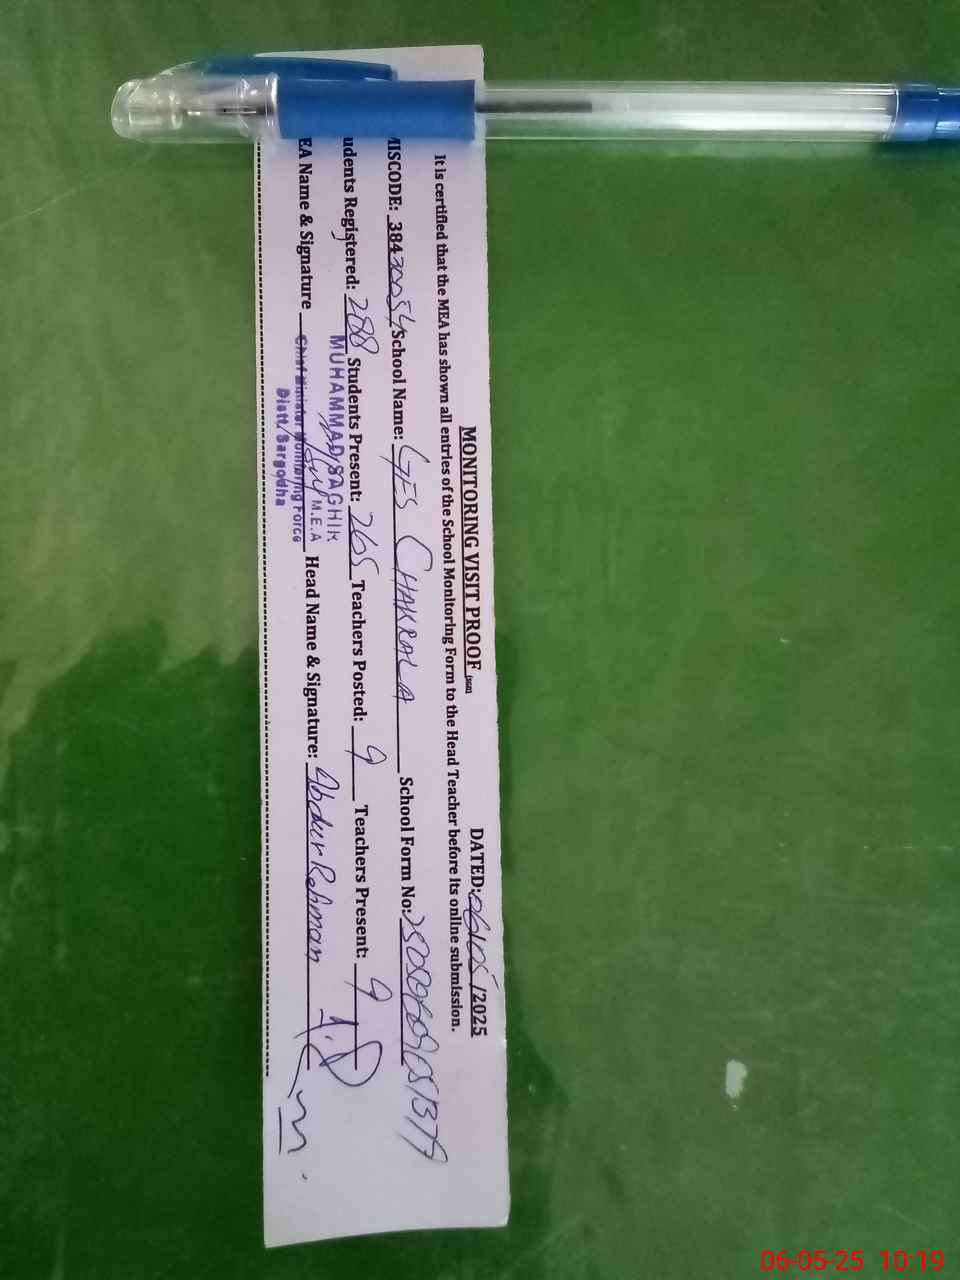 MONITORING VISIT PROOF (SGD) DATED: 06/05/2025
It is certified that the MEA has shown all entries of the School Monitoring Form to the Head Teacher before its online submission.
MISCODE: 38420054 School Name: GES CHAKRALA School Form No:
udents Registered: 288 Students Present: 265 Teachers Posted: 9 Teachers Present: 9
EA Name & Signature Head Name & Signature: Abdur Rehman
MUHAMMAD SAGHIR
M.E.A
Chief Minister Monitoring Force
Distt. Sargodha
06-05-25 10:19